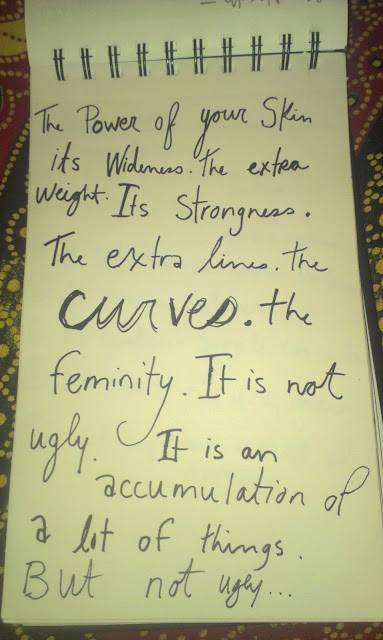 The Power of your Skin
its Wideness. The extra
Weight. Its Strongness.
The extra lines. the
curves. the
feminity. It is not
ugly. It is an
accumulation of
a lot of things.
But not ugly...